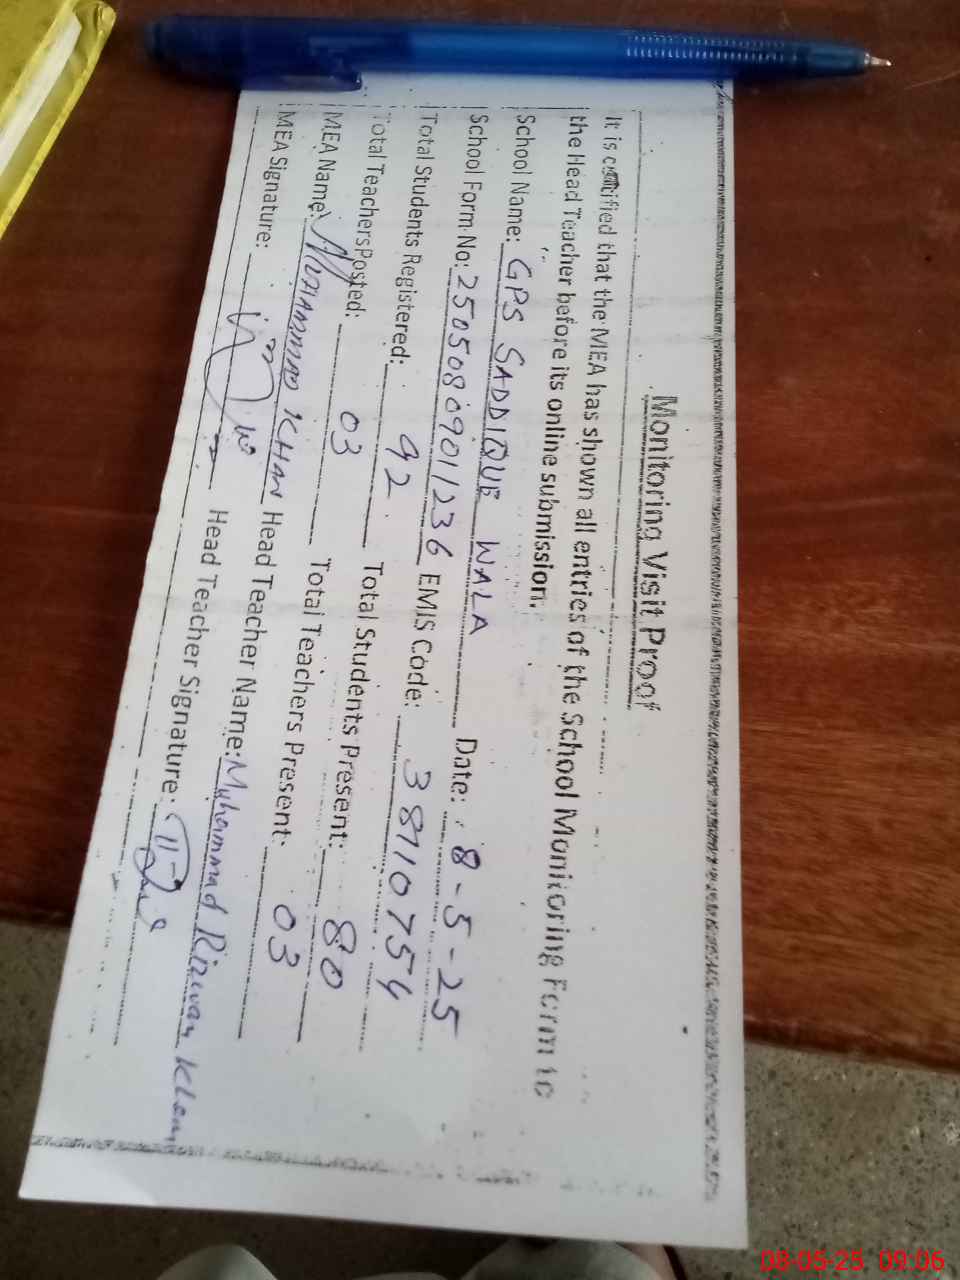 Monitoring Visit Proof
It is certified that the MEA has shown all entries of the School Monitoring Form to
the Head Teacher before its online submission.
School Name: GPS SADDIQUE WALA Date: 8-5-25
School Form No: 250508090 11236 EMIS Code: 38710754
Total Students Registered: 92 Total Students Present: 80
Total Teachers Posted: 03 Total Teachers Present: 03
MEA Name: MUHAMMAD KHAN Head Teacher Name: Muhammad Rizwan Khan
MEA Signature: Head Teacher Signature:
08-05-25 09:06